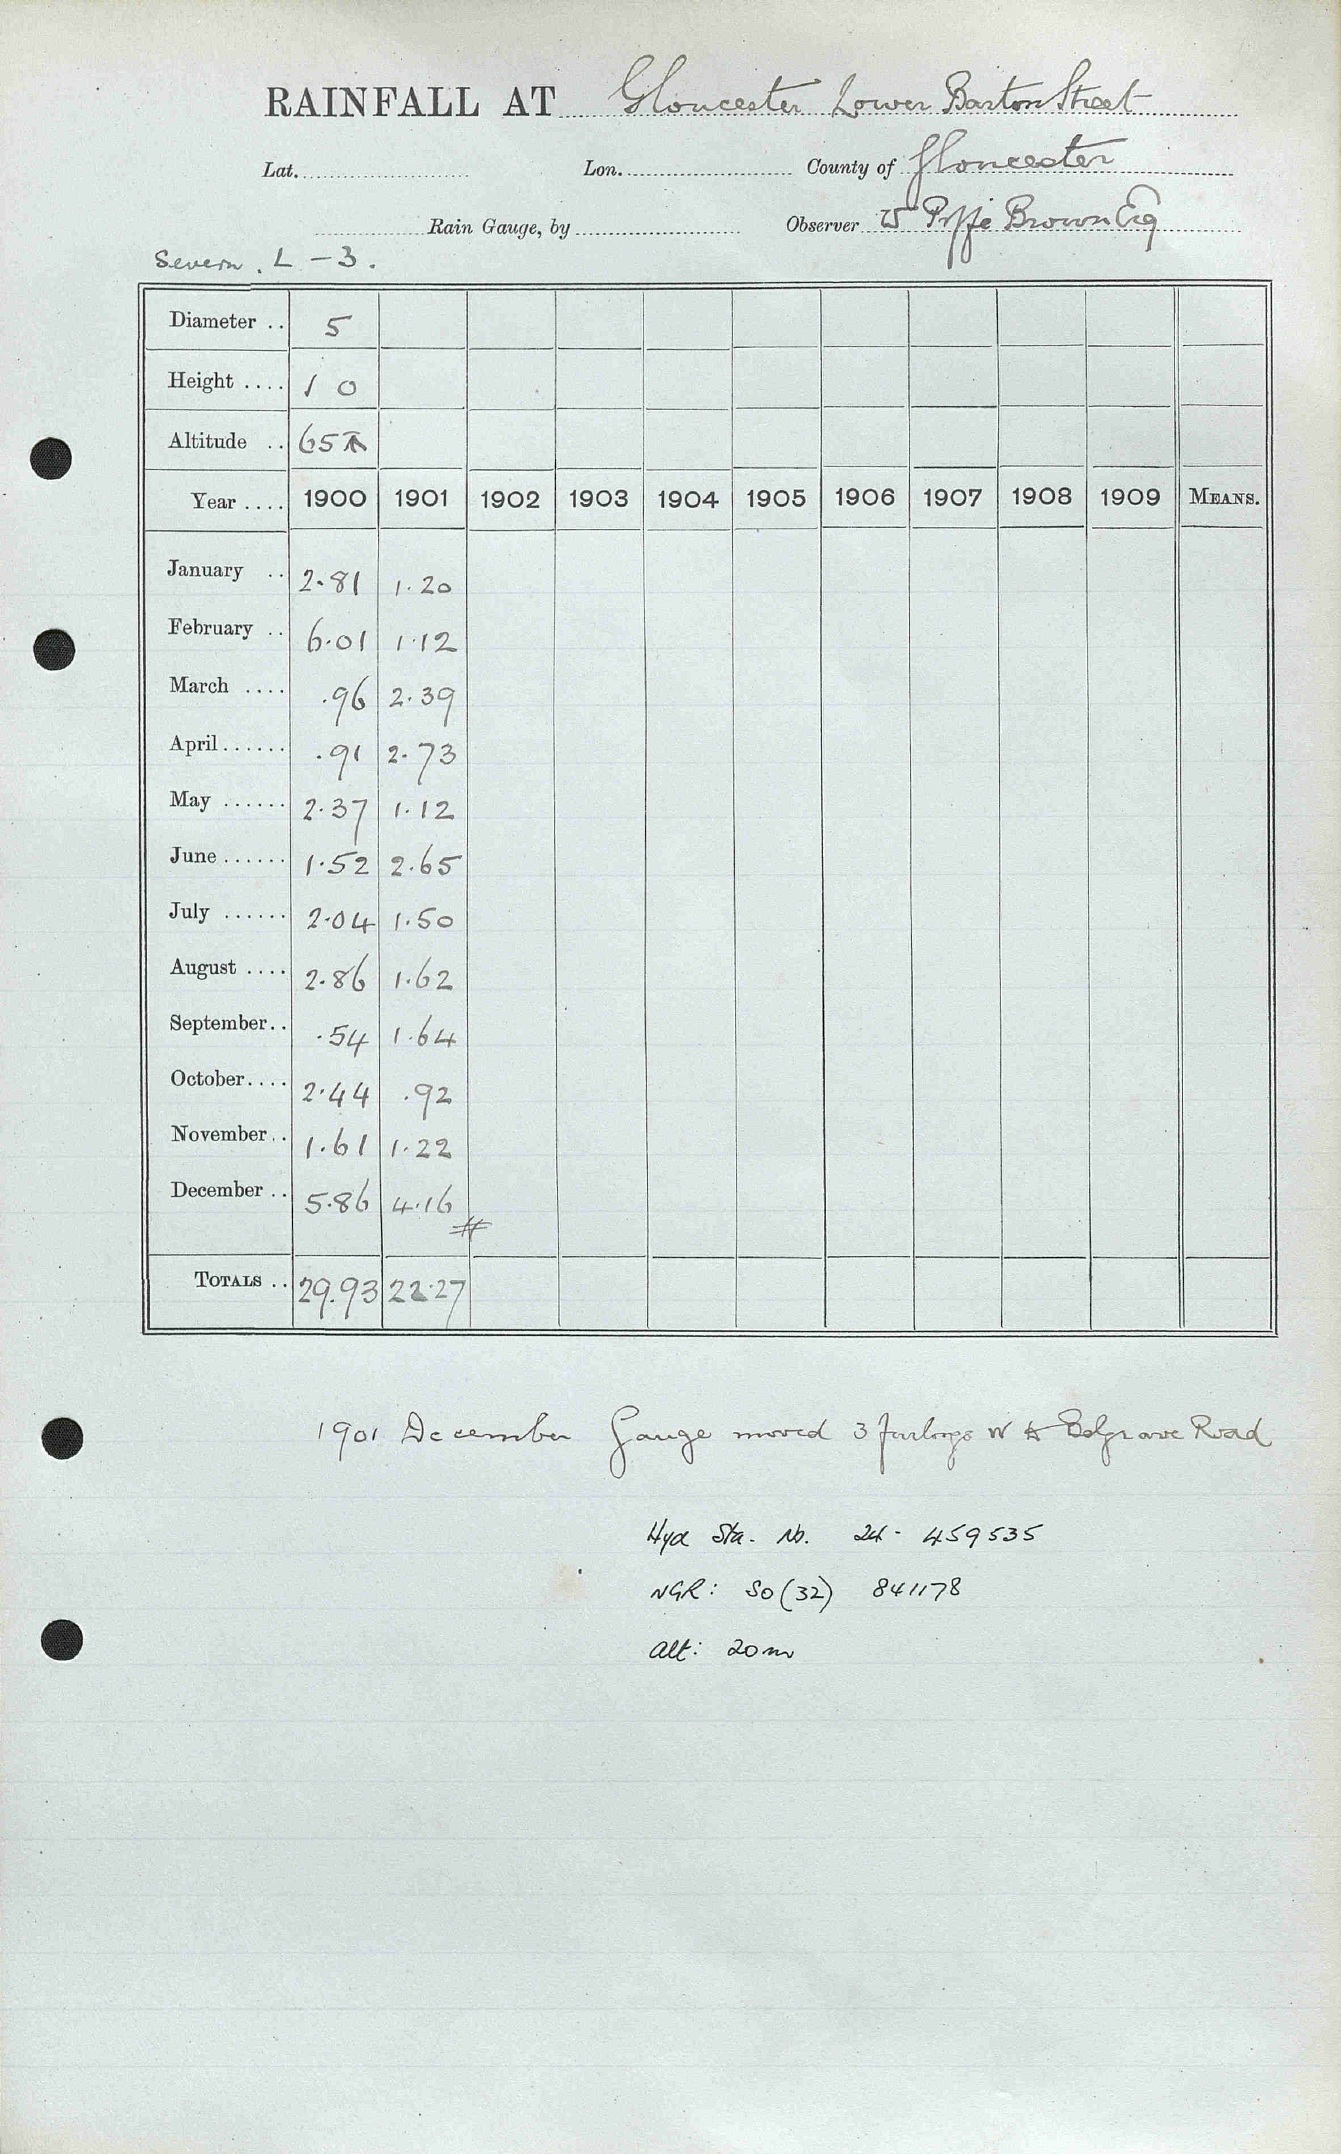 RAINFALL AT Gloucester Lower Barton Street
Lat. Lon. County of Gloucester
Rain Gauge, by Observer W Brown Esq
Severn. L - 3.
Diameter .. 5
Height .... 1 0
Altitude .. 65
Year .... 1900 1901 1902 1903 1904 1905 1906 1907 1908 1909 MEANS.
January .. 2.81 1.20
February .. 6.01 1.12
March .... .96 2.39
April...... .91 2.73
May ...... 2.37 1.12
June...... 1.52 2.65
July ...... 2.04 1.50
August .... 2.86 1.62
September.. .54 1.64
October.... 2.44 .92
November.. 1.61 1.22
December .. 5.86 4.16
#
TOTALS .. 29.93 22.27
1901 December Gauge moved 3 furlongs W to Belgrave Road
Hyd Sta. No. 24- 459535
NGR: SO (32) 841178
Alt: 20m